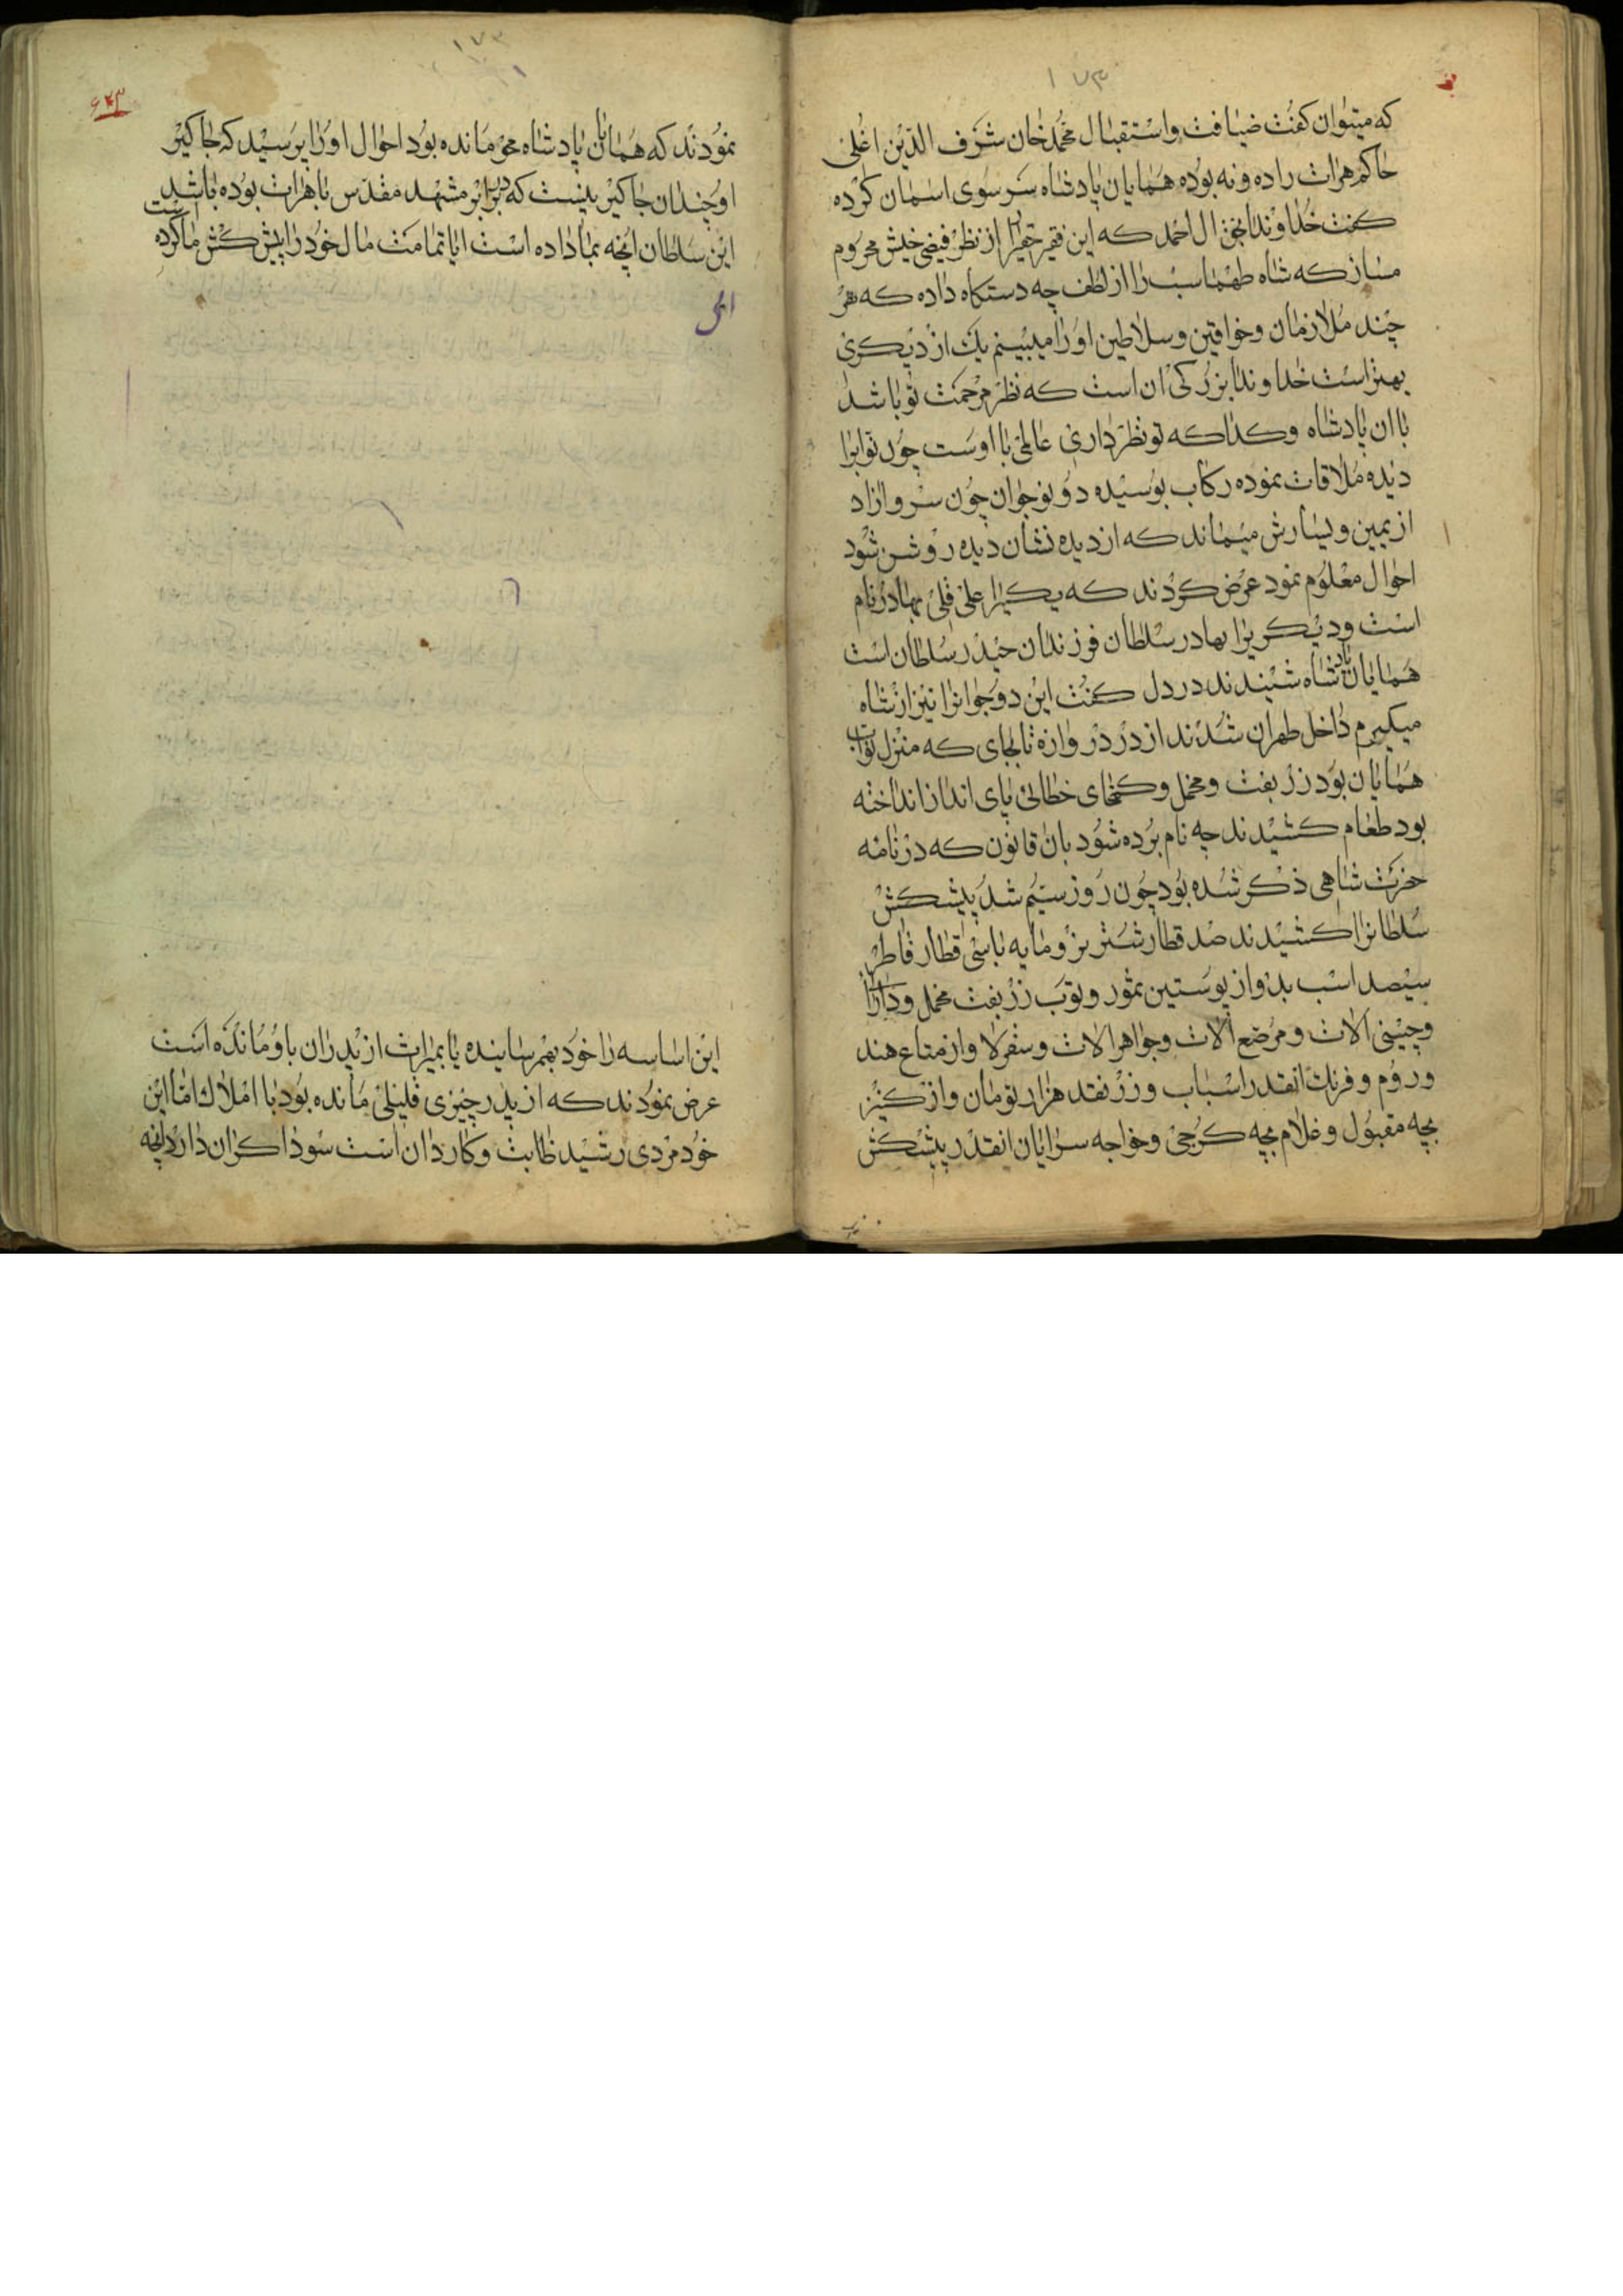 ١٧٣
که میتوان کفت ضیافت واستقبال محمدخان شرف الدین اغلی
حاکم هرات راده ونه بوده همایان پادشاه سر سوی اسمان کرده
کفت خداوندا بحق ال احمد که این فقیر حقیر را از نظر فیض خیش محروم
مساز که شاه طهماسب را از لطف چه دستکاه داده که هر
چند ملازمان وخواقین وسلاطین اورا میبینم یک از دیکری
بهتر است خداوندا بزرکی ان است که نظر مرحمت تو باشد
با ان پادشاه وکدا که تو نظر داری عالمی با اوست چون
دیده ملاقات نموده رکاب بوسیده دو نوجوان چون سرو ازاد
از یمین ویسارش میماند که از دیده نشان دیده روشن شود
احوال معلوم نمود عرض کردند که یکیرا علی قلی بهادر نام
است ودیکریرا بهادر سلطان فرزندان حیدر سلطان است
همایان پادشاه شنیدند در دل کفت این دو جوانرا نیز از شاه
میکیرم داخل طهران شدند از در دروازه تا بجای که منزل نواب
همایان بود زربفت ومخمل وکمخای خطائی پای انداز انداخته
بود طعام کشیدند چه نام برده شود بان قانون که در نامه
حزرت شاهی ذکر شده بود چون روز سیم شد پیشکش
سلطانرا کشیدند صد قطار شتر نر ومایه با سی قطار قاطر
سیصد اسب بدو از پوستین سمور وتوب زربفت مخمل ودارا
وچینی الات ومرضع الات وجواهر الات وسقرلا واز متاع هند
وروم وفرنک انقدر اسباب وزر نقد هزار تومان واز کنیز
بچه مقبول وغلام بچه کرجی وخواجه سرایان انقدر پیشکش
١٧٣
۶۷۳
نمودند که همایان پادشاه محو مانده بود احوال اورا پرسید که جاکیر
او چندان جاکیر نیست که در برابر مشهد مقدس یا هرات بوده باشد
این سلطان انچه بما داده است ایا تمامت مال خودرا پیش کش ما کرده است
این اساسه را خود بهم رسانیده یا بمیراث از پدران باو مانده است
عرض نمودند که از پدر چیزی قلیلی مانده بود با املاک اما این
خود مردی رشید ظابت وکاردان است سوداکران دارد انچه